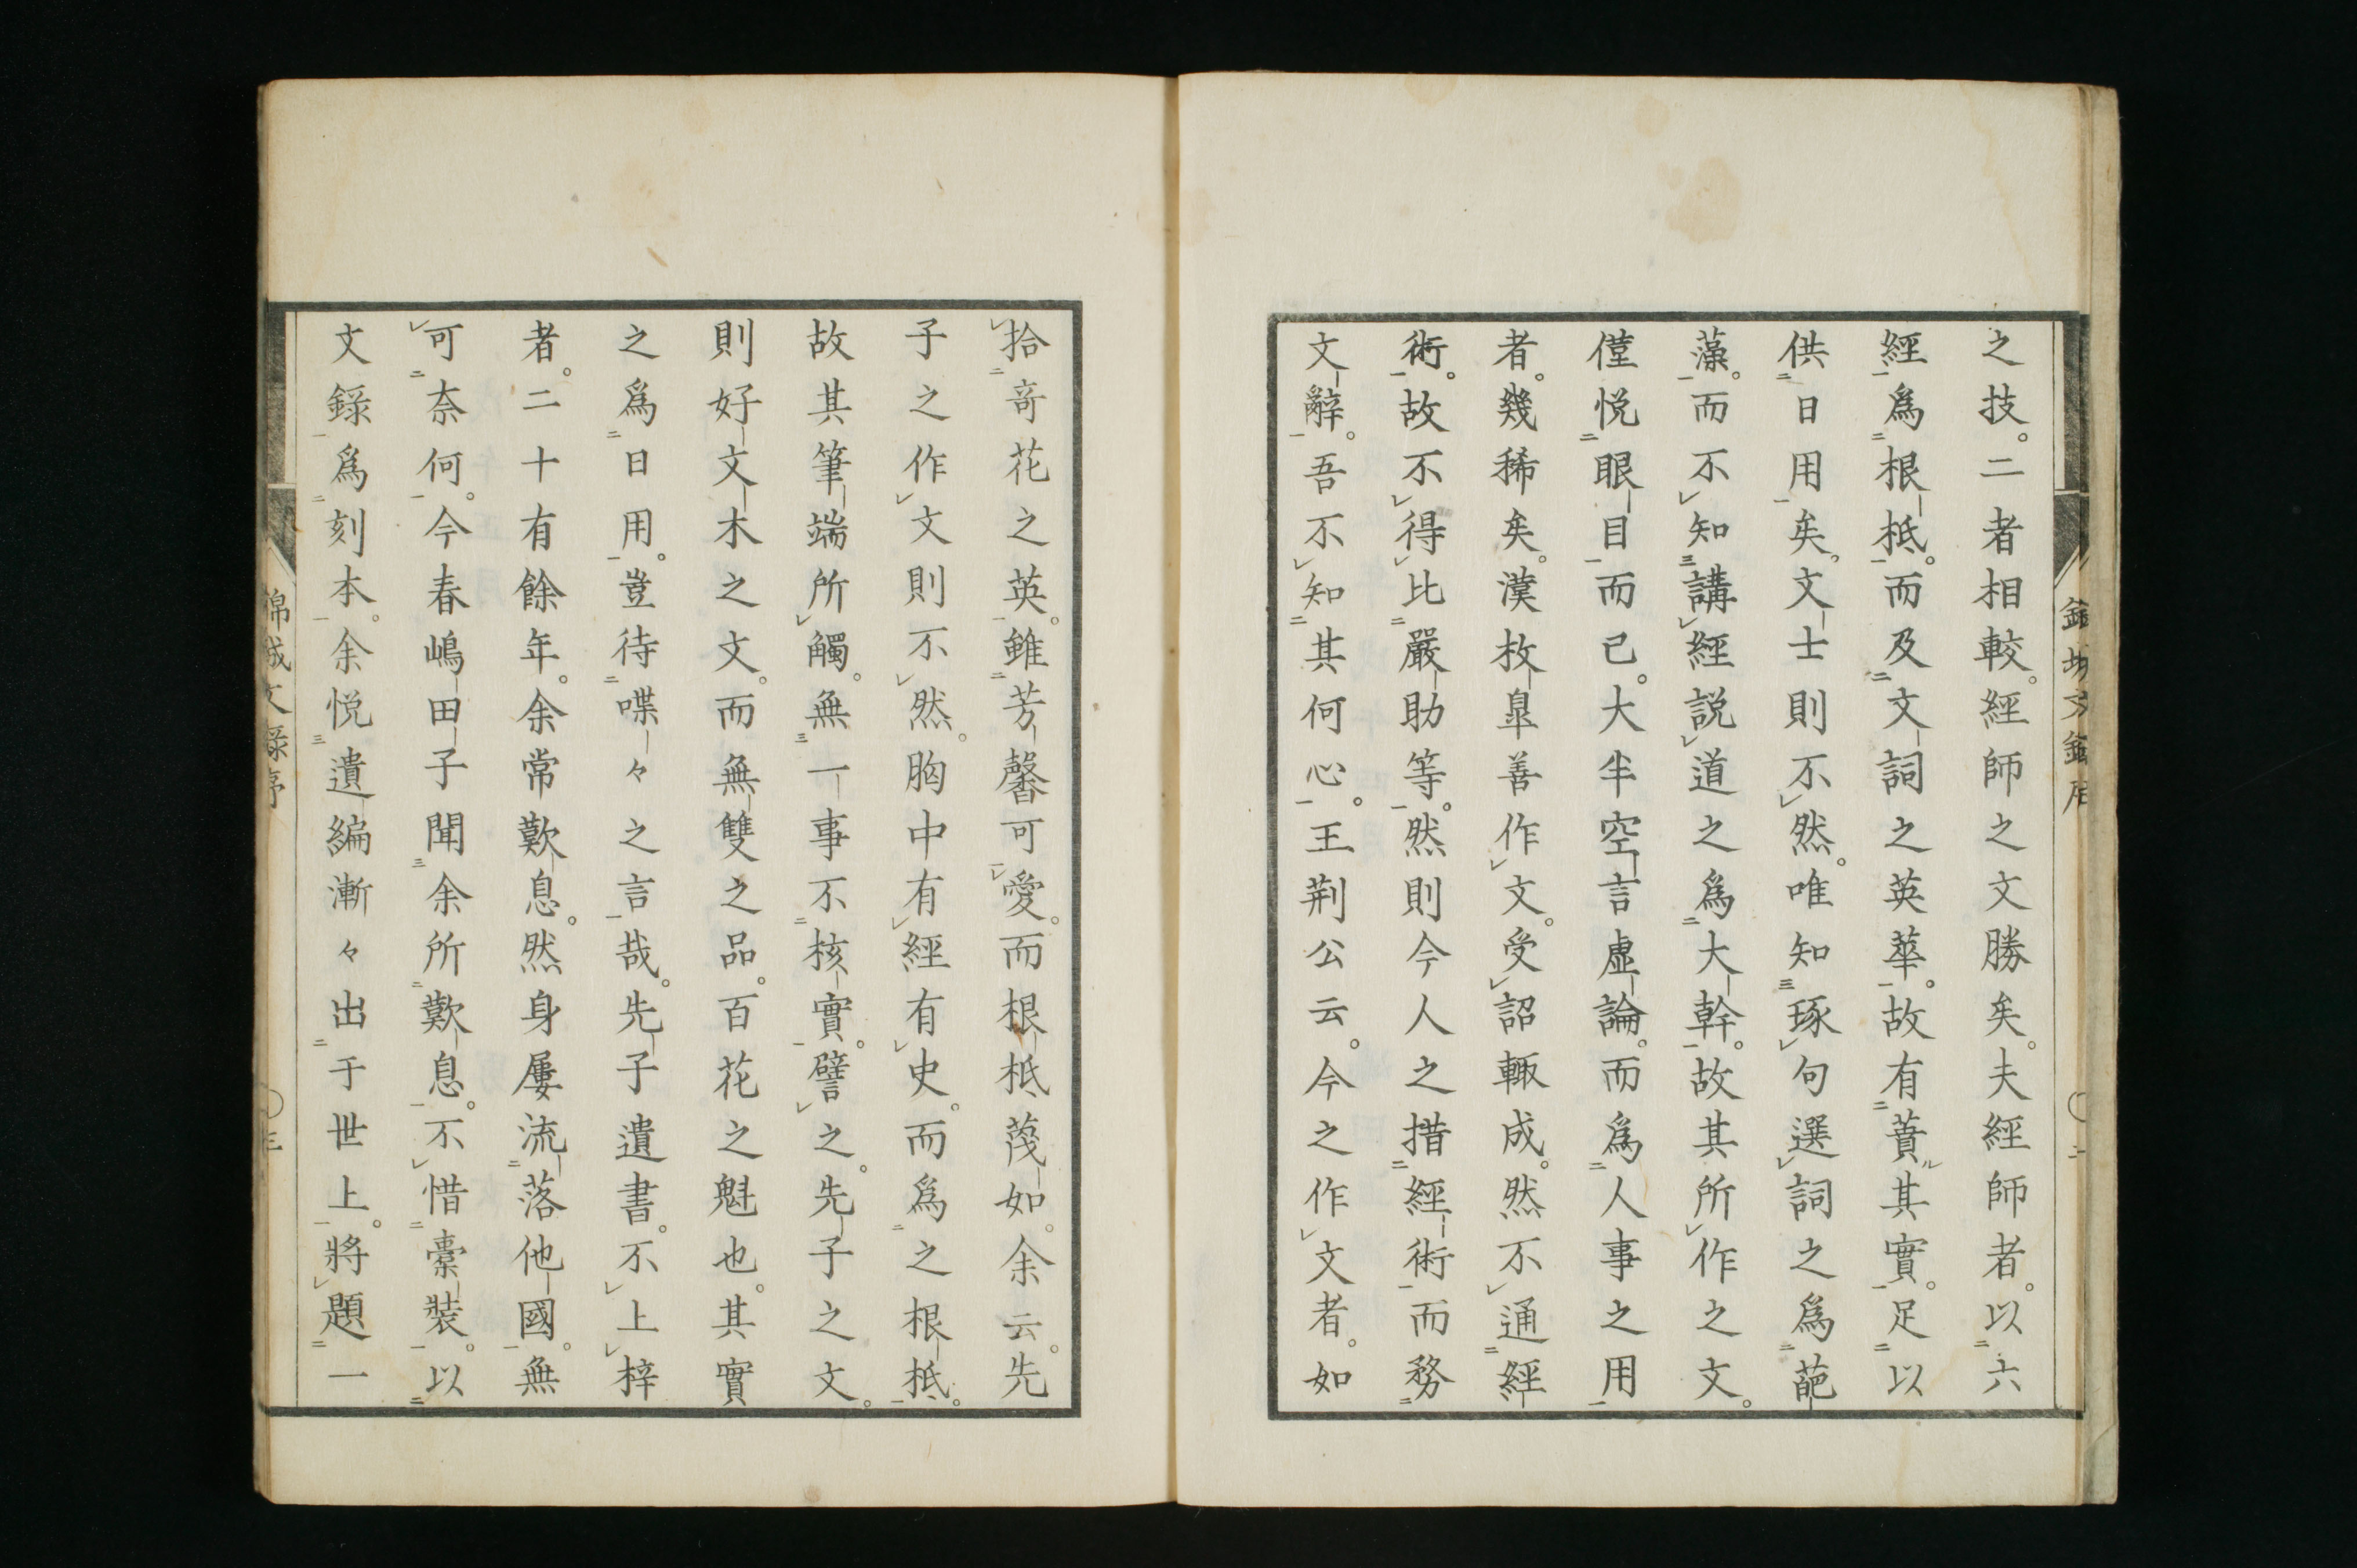 之技。二者相較。經師之文勝矣。夫經師者。以六
經爲根柢。而及文詞之英華。故有蕡其實。足以
供日用矣。文士則不然。唯知琢句選詞之爲葩
藻。而不知講經説道之爲大幹。故其所作之文。
僅悦眼目而已。大半空言虛論。而爲人事之用
者。幾稀矣。漢枚皐善作文。受詔輒成。然不通經
術。故不得比嚴助等。然則今人之措經術而務
文辭。吾不知其何心。王荆公云。今之作文者。如
拾奇花之英。雖芳馨可愛。而根柢蔑如。余云。先
子之作文則不然。胸中有經有史。而爲之根柢。
故其筆端所觸。無一事不核實。譬之。先子之文。
則好文木之文。而無雙之品。百花之魁也。其實
之爲日用。豈待喋々之言哉。先子遺書。不上梓
者。二十有餘年。余常歎息。然身屢流落他國。無
可奈何。今春嶋田子聞余所歎息。不惜橐裝。以
文錄爲刻本。余悦遺編漸々出于世上。將題一
錦城文錄序
三